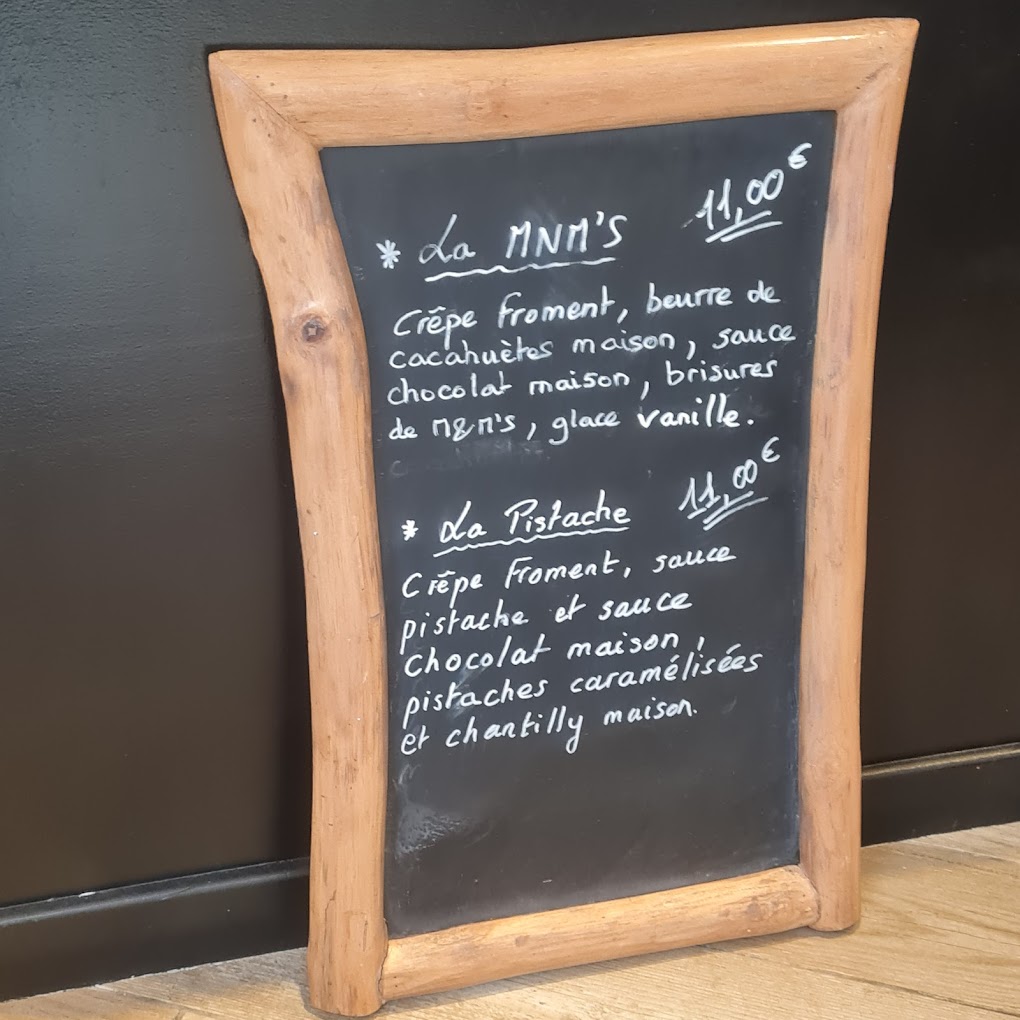 * La MNM'S 11,00€
Crêpe froment, beurre de
cacahuètes maison, sauce
chocolat maison, brisures
de M&M'S, glace vanille.
* La Pistache 11,00€
Crêpe Froment, sauce
pistache et sauce
chocolat maison,
pistaches caramélisées
et chantilly maison.